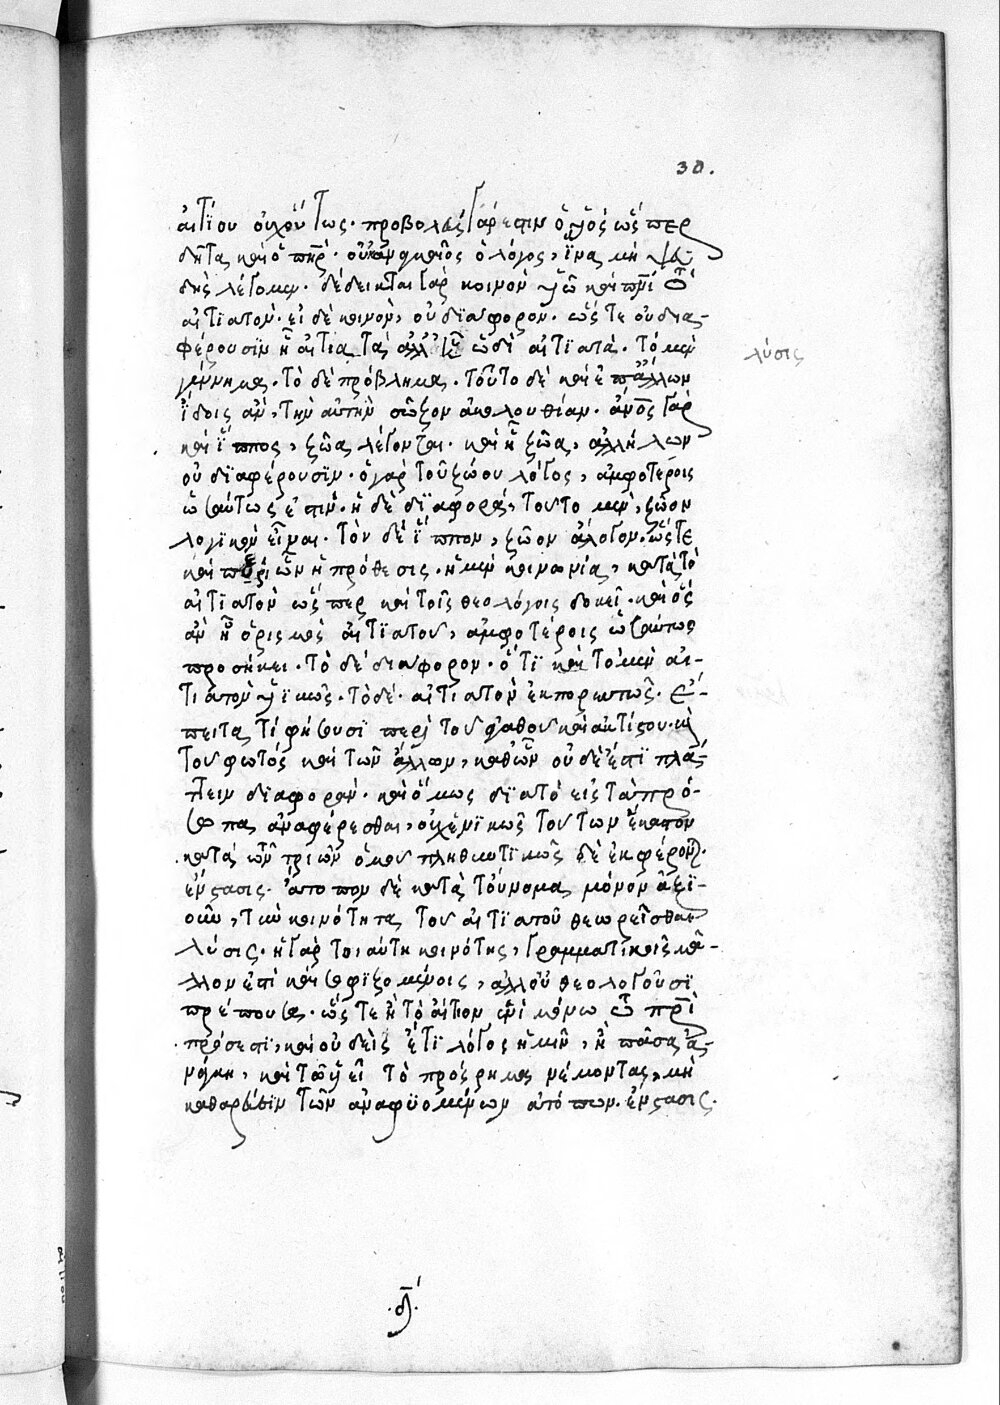 30.
αἰτίου οὐχ οὕτως · προβολεὺς γάρ ἐστιν ὁ ὥσπερ
δῆτα καὶ ὁ πηρ · ὁ λόγος, ἵνα μὴ ψευ-
δῆς λέγομεν · δέδεικται γὰρ κοινὸν καὶ πνι
αἰτιατόν · εἰ δὲ κοινὸν, οὐ διάφορον · ὥστε οὐ δια-
φέρουσιν ᾗ αἰτιατὰ αἰτιατά · τὸ μὲν
λύσις
γέννημα · τὸ δὲ πρόβλημα · τοῦτο δὲ καὶ ἐπ' ἄλλων
ἴδοις ἂν, τὴν αὐτὴν σῶζον ἀκολουθίαν · ἄνος γὰρ
καὶ ἵππος, ζῶα λέγονται · καὶ ᾗ ζῶα, ἀλλήλων
οὐ διαφέρουσιν · ὁ γὰρ τοῦ ζώου λόγος, ἀμφοτέροις
ὡσαύτως ἐστίν · ἡ δὲ διαφορά, τοῦτο μὲν, ζῶον
λογικὸν εἶναι · τὸν δὲ ἵππον, ζῶον ἄλογον · ὥστε
καὶ περὶ ὧν ἡ πρόθεσις · ἡ μὲν κοινωνία, κατὰ τὸ
αἰτιατὸν ὥσπερ καὶ τοῖς θεολόγοις δοκεῖ · καὶ ὃς
ἂν ᾖ ὁρισμὸς αἰτιατοῦ, ἀμφοτέροις ὡσαύτως
προσήκει · τὸ δὲ διάφορον · ὅτι καὶ τὸ μὲν αἰ-
τιατὸν · τὸ δὲ · αἰτιατὸν ἐκπορευτῶς · ἔ-
πειτα τί φήσουσι περὶ τοῦ ἀγαθοῦ καὶ ἀκτίστου · κὶ
τοῦ φωτὸς καὶ τῶν ἄλλων, καθ' ὧν οὐδὲ ἔστι πλά-
ττειν διαφοράν · καὶ ὅμως διὰ τὸ εἰς τὰ πρό-
σωπα ἀναφέρεσθαι, οὐχ ἑνικῶς τούτων ἕκαστον
κατὰ τῶν τριῶν ὁμοῦ πληθυντικῶς δὲ ἐκφέρουσι ·
ἔνστασις · ἄτοπον δὲ κατὰ τοὔνομα μόνον ἀξι-
οῦν, τὴν κοινότητα τοῦ αἰτιατοῦ θεωρεῖσθαι
λύσις · ἡ γὰρ τοιαύτη κοινότης, γραμματικοῖς μᾶ-
λλον ἐστὶ καὶ σοφιζομένοις, ἀλλ' οὐ θεολογοῦσι
πρέπουσα · ὥστε ἢ τὸ αἴτιον μόνω πρὶ
πρόσεστι, καὶ οὐδεὶς ἔτι λόγος ἡμῖν, ἢ πᾶσα ἀ-
νάγκη, καὶ τῶ τὸ πρόσρημα νέμοντας, μὴ
καθαρεύειν τῶν ἀναφυομένων ἀτόπων · ἔνστασις ·